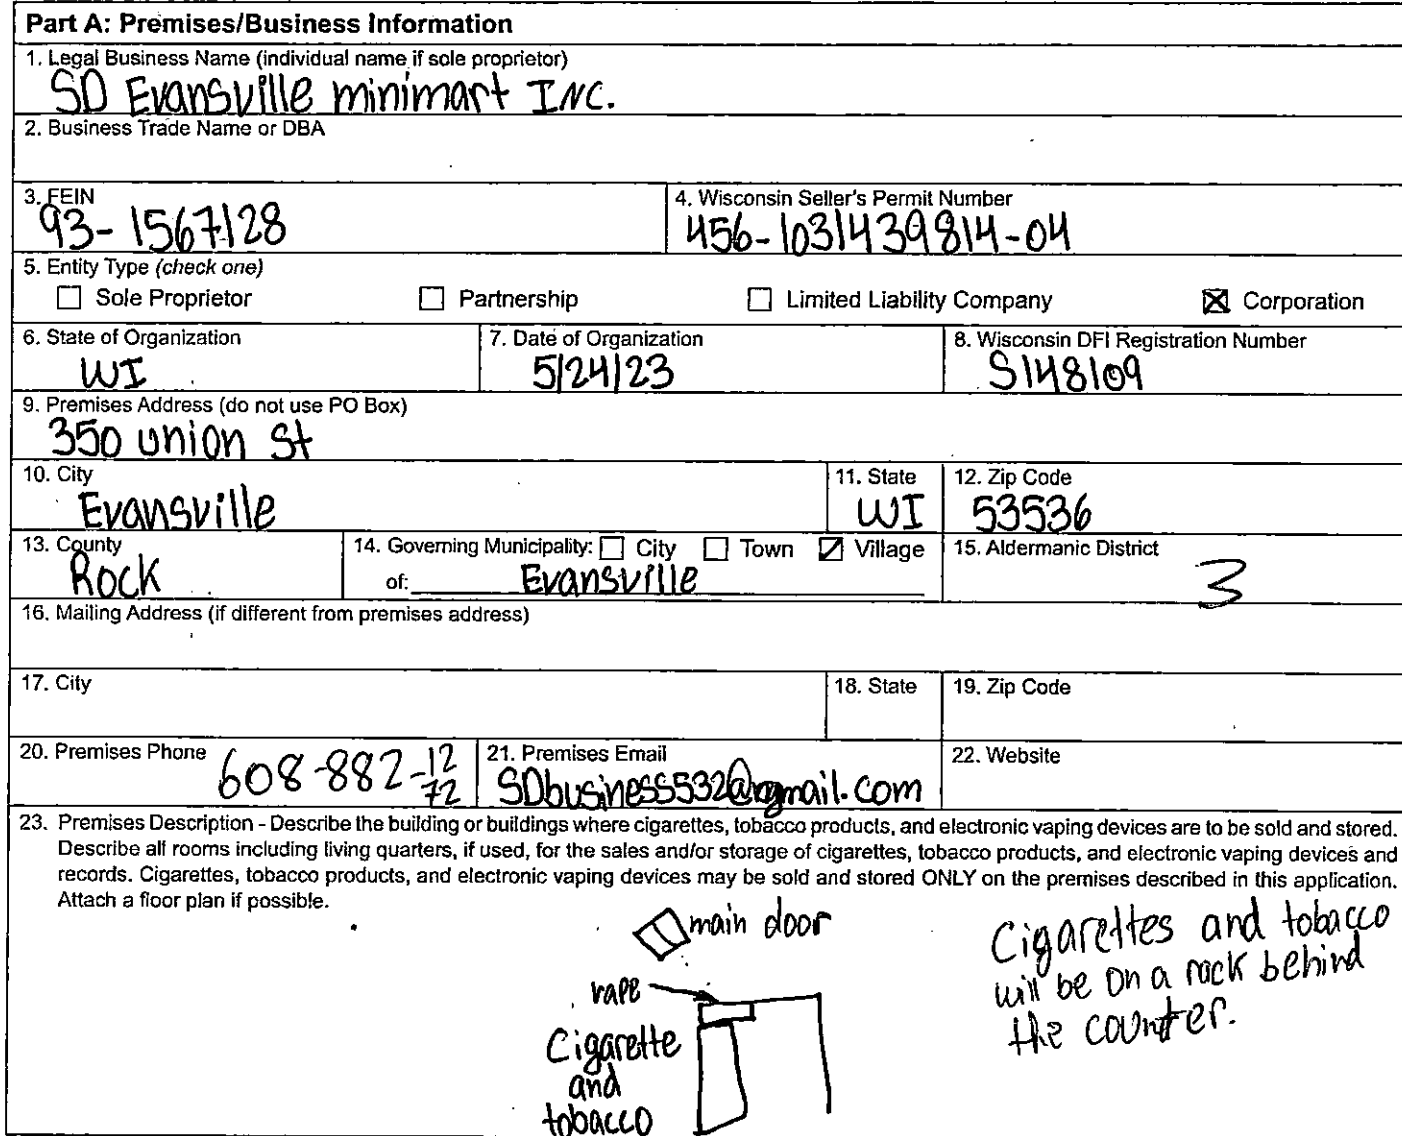 Part A: Premises/Business Information
1. Legal Business Name (individual name if sole proprietor)
SD Evansville minimart INC.
2. Business Trade Name or DBA
3. FEIN
93-1567128
4. Wisconsin Seller's Permit Number
456-1031439814-04
5. Entity Type (check one)
☐ Sole Proprietor ☐ Partnership ☐ Limited Liability Company ☒ Corporation
6. State of Organization
WI
7. Date of Organization
5/24/23
8. Wisconsin DFI Registration Number
S148109
9. Premises Address (do not use PO Box)
350 union St
10. City
Evansville
11. State
WI
12. Zip Code
53536
13. County
Rock
14. Governing Municipality: ☐ City ☐ Town ☑ Village
of: Evansville
15. Aldermanic District
3
16. Mailing Address (if different from premises address)
17. City
18. State
19. Zip Code
20. Premises Phone
608-882-12
72
21. Premises Email
SDbusiness532@gmail.com
22. Website
23. Premises Description - Describe the building or buildings where cigarettes, tobacco products, and electronic vaping devices are to be sold and stored.
Describe all rooms including living quarters, if used, for the sales and/or storage of cigarettes, tobacco products, and electronic vaping devices and
records. Cigarettes, tobacco products, and electronic vaping devices may be sold and stored ONLY on the premises described in this application.
Attach a floor plan if possible.
main door
vape
Cigarette
and
tobacco
Cigarettes and tobacco
will be on a rack behind
the counter.